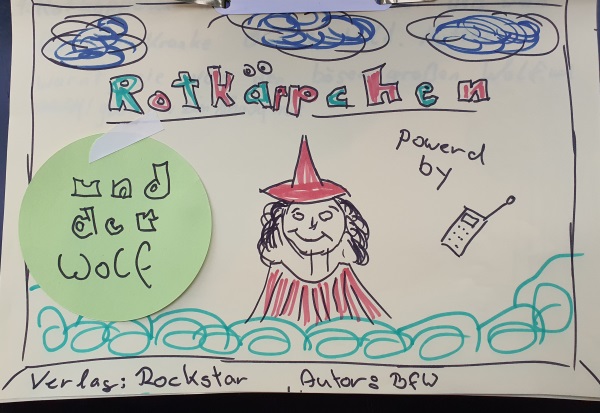 Rotkäppchen
und
der
Wolf
Powerd
by
Verlag: Rockstar Autor: BFW